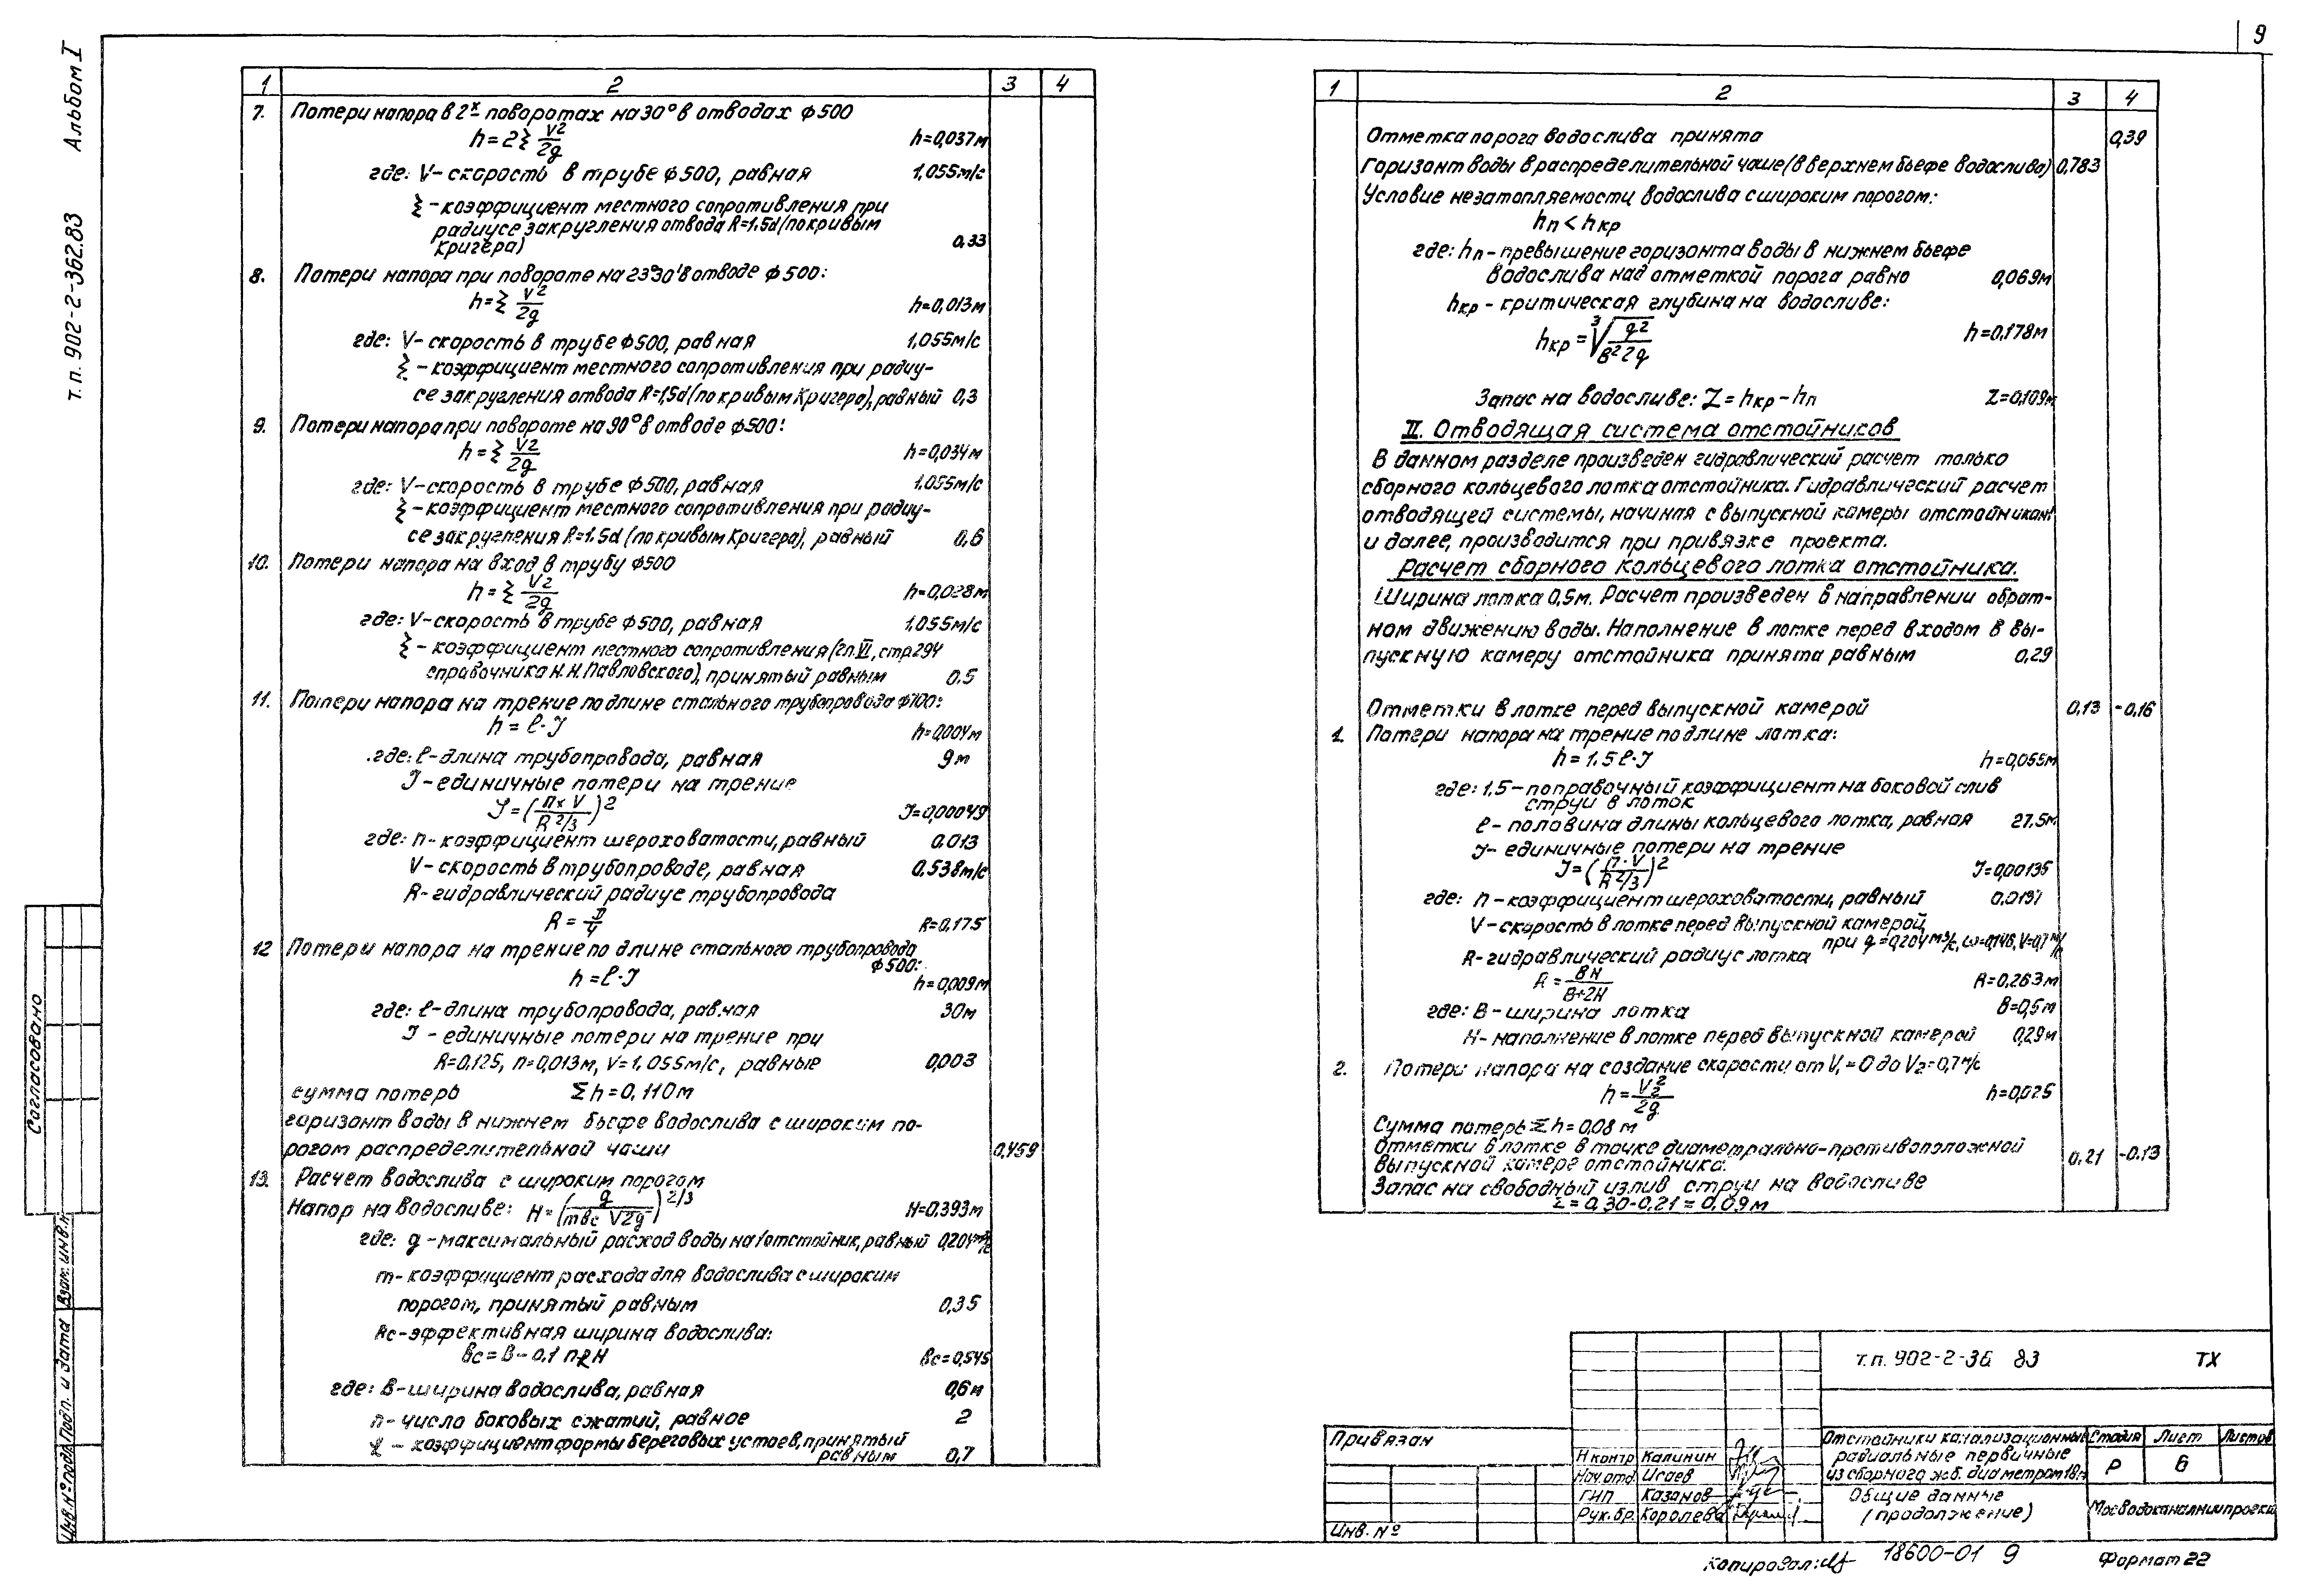 9
Альбом I
т.п. 902-2-362.83
1 2 3 4
7. Потери напора в 2х поворотах на 30° в отводах ф500
h=2ξ V²/2g h=0,037м
где: V-скорость в трубе ф500, равная 1,055м/с
ξ-коэффициент местного сопротивления при
радиусе закругления отвода R=1,5d (по кривым
Кригера) 0,33
8. Потери напора при повороте на 23°30' в отводе ф500:
h=ξ V²/2g h=0,013м
где: V-скорость в трубе ф500, равная 1,055м/с
ξ-коэффициент местного сопротивления при радиу-
се закругления отвода R=1,5d (по кривым Кригера), равный 0,3
9. Потери напора при повороте на 90° в отводе ф500:
h=ξ V²/2g h=0,034м
где: V-скорость в трубе ф500, равная 1,055м/с
ξ-коэффициент местного сопротивления при радиу-
се закругления R=1.5d (по кривым Кригера), равный 0,6
10. Потери напора на вход в трубу ф500
h=ξ V²/2g h=0,028м
где: V-скорость в трубе ф500, равная 1,055м/с
ξ-коэффициент местного сопротивления (гл. VI, стр 294
справочника Н.Н. Павловского), принятый равным 0.5
11. Потери напора на трение по длине стального трубопровода ф700:
h = ℓ·J h=0,004м
где: ℓ-длина трубопровода, равная 9м
J-единичные потери на трение
J=(n×V/R^2/3)² J=0,00049
где: n-коэффициент шероховатости, равный 0.013
V-скорость в трубопроводе, равная 0,538м/с
R-гидравлический радиус трубопровода
R = D/4 R=0,175
12 Потери напора на трение по длине стального трубопровода
ф500:
h = ℓ·J h=0,009м
где: ℓ-длина трубопровода, равная 30м
J - единичные потери на трение при
R=0,125, n=0,013м, V=1,055м/с, равные 0,003
сумма потерь Σh=0,110м
горизонт воды в нижнем бьефе водослива с широким по-
рогом распределительной чаши 0,459
13. Расчет водослива с широким порогом
Напор на водосливе: H=(q/mвс√2g)^2/3 H=0,393м
где: q-максимальный расход воды на 1 отстойник, равный 0,204м³/с
m-коэффициент расхода для водослива с широким
порогом, принятый равным 0,35
вс-эффективная ширина водослива:
вс=в-0,1 nξH вс=0,545
где: в-ширина водослива, равная 0,6м
n-число боковых сжатий, равное 2
ξ-коэффициент формы береговых устоев, принятый
равным 0,7
1 2 3 4
Отметка порога водослива принята 0,39
Горизонт воды в распределительной чаше (в верхнем бьефе водослива) 0,783
Условие незатопляемости водослива с широким порогом:
hп < hкр
где: hп-превышение горизонта воды в нижнем бьефе
водослива над отметкой порога равно 0,069м
hкр-критическая глубина на водосливе:
hкр=³√q²/в²2g h=0,178м
Запас на водосливе: Z=hкр-hп Z=0,109м
II. Отводящая система отстойников
В данном разделе произведен гидравлический расчет только
сборного кольцевого лотка отстойника. Гидравлический расчет
отводящей системы, начиная с выпускной камеры отстойника
и далее, производится при привязке проекта.
Расчет сборного кольцевого лотка отстойника.
Ширина лотка 0,5м. Расчет произведен в направлении обрат-
ном движению воды. Наполнение в лотке перед входом в вы-
пускную камеру отстойника принята равным 0,29
Отметки в лотке перед выпускной камерой 0,13 -0,16
1. Потери напора на трение по длине лотка:
h=1.5ℓ·J h=0,055м
где: 1,5-поправочный коэффициент на боковой слив
струи в лоток
ℓ-половина длины кольцевого лотка, равная 27.5м
J-единичные потери на трение
J=(n·V/R^2/3)² J=0,00135
где: n-коэффициент шероховатости, равный 0,0137
V-скорость в лотке перед выпускной камерой
при q=0,204м³/с, ω=0,146, V=0,7м/с
R-гидравлический радиус лотка
R=ВН/В+2Н R=0,263м
где: В-ширина лотка В=0,5м
Н-наполнение в лотке перед выпускной камерой 0,29м
2. Потери напора на создание скорости от V₁=0 до V₂=0,7м/с
h=V₂²/2g h=0,025
Сумма потерь Σh=0,08м
Отметки в лотке в точке диаметрально-противоположной
выпускной камере отстойника. 0,21 -0.13
Запас на свободный излив струи на водосливе
Σ=0,30-0,21=0,09м
Согласовано
Инв. № подл. Подп. и дата Взам. инв. №
т.п. 902-2-36 83 ТХ
Привязан
Инв. №
Н контр Калинин
Нач. отд Исаев
ГИП Казанов
Рук. бр. Королева
Отстойники канализационные
радиальные первичные
из сборного ж.б. диаметром 18м
Стадия Лист Листов
Р 6
Общие данные
(продолжение)
Мосводоканалниипроект
Копировал: 18600-01 9 Формат 22